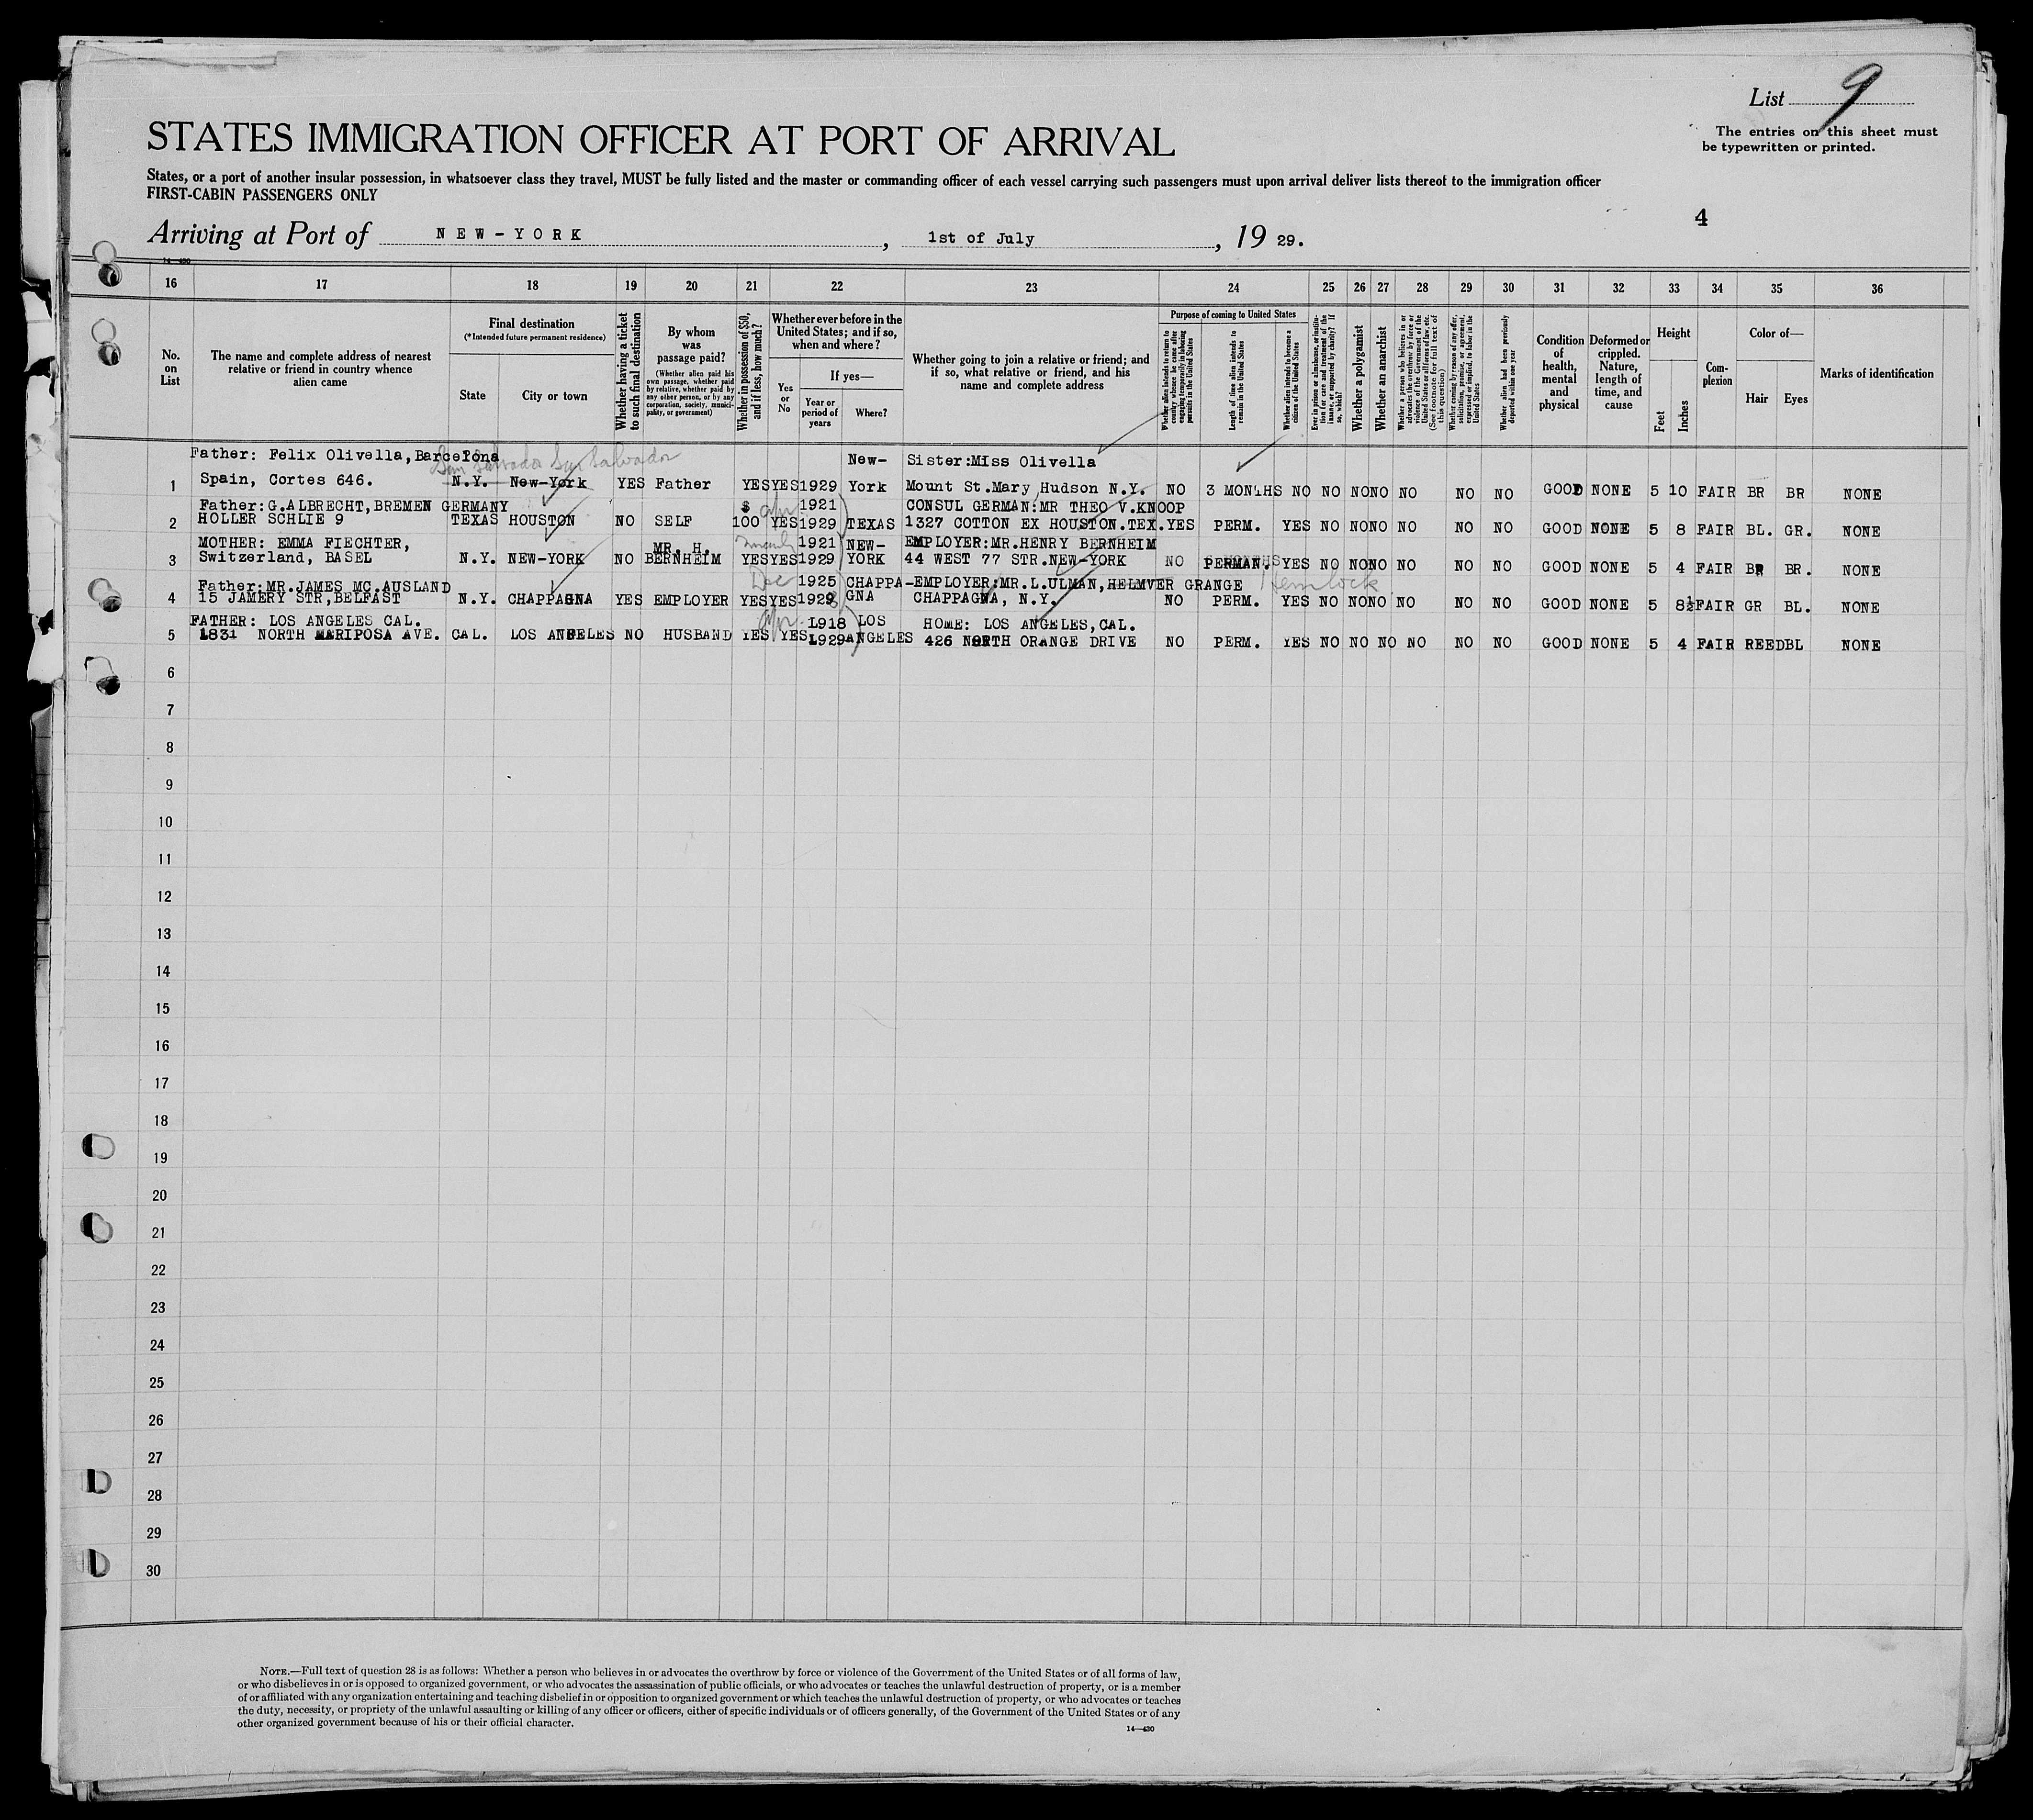 List 9
The entries on this sheet must
be typewritten or printed.
STATES IMMIGRATION OFFICER AT PORT OF ARRIVAL
States, or a port of another insular possession, in whatsoever class they travel, MUST be fully listed and the master or commanding officer of each vessel carrying such passengers must upon arrival deliver lists thereof to the immigration officer
FIRST-CABIN PASSENGERS ONLY
4
Arriving at Port of NEW-YORK, 1st of July, 19 29.
14-430
16 17 18 19 20 21 22 23 24 25 26 27 28 29 30 31 32 33 34 35 36
No. on List
The name and complete address of nearest relative or friend in country whence alien came
Final destination
(*Intended future permanent residence)
State
City or town
Whether having a ticket to such final destination
By whom was passage paid?
(Whether alien paid his own passage, whether paid by relative, whether paid by any other person, or by any corporation, society, municipality, or government)
Whether in possession of $50, and if less, how much?
Whether ever before in the United States; and if so, when and where?
Yes or No
If yes—
Year or period of years
Where?
Whether going to join a relative or friend; and if so, what relative or friend, and his name and complete address
Purpose of coming to United States
Whether alien intends to return to country whence he came after engaging temporarily in laboring pursuits in the United States
Length of time alien intends to remain in the United States
Whether alien intends to become a citizen of the United States
Ever in prison or almshouse, or institution for care and treatment of the insane, or supported by charity? If so, which?
Whether a polygamist
Whether an anarchist
Whether a person who believes in or advocates the overthrow by force or violence of the Government of the United States or all forms of law, etc. (See footnote for full text of this question)
Whether coming by reason of any offer, solicitation, promise, or agreement, expressed or implied, to labor in the United States
Whether alien had been previously deported within one year
Condition of health, mental and physical
Deformed or crippled. Nature, length of time, and cause
Height
Feet
Inches
Complexion
Color of—
Hair
Eyes
Marks of identification
Father: Felix Olivella,Barcelona New- Sister:MIss Olivella
San Salvador San Salvador
1 Spain, Cortes 646. N.Y. New-York YES Father YES YES 1929 York Mount St.Mary Hudson N.Y. NO 3 MONTHS NO NO NO NO NO NO NO GOOD NONE 5 10 FAIR BR BR NONE
Father:G.ALBRECHT,BREMEN GERMANY $ Apr 1921 CONSUL GERMAN:MR THEO V.KNOOP
2 HOLLER SCHLIE 9 TEXAS HOUSTON NO SELF 100 YES 1929 TEXAS 1327 COTTON EX HOUSTON.TEX. YES PERM. YES NO NO NO NO NO NO GOOD NONE 5 8 FAIR BL. GR. NONE
MOTHER: EMMA FIECHTER, MR. H. 1921 NEW- EMPLOYER:MR.HENRY BERNHEIM
3 Switzerland, BASEL N.Y. NEW-YORK NO BERNHEIM YES YES 1929 YORK 44 WEST 77 STR.NEW-YORK NO PERMAN. YES NO NO NO NO NO NO GOOD NONE 5 4 FAIR BR BR. NONE
Father:MR.JAMES MC.AUSLAND Dec 1925 CHAPPA- EMPLOYER:MR.L.ULMAN,HELMVER GRANGE Hemlock
4 15 JAMERY STR,BELFAST N.Y. CHAPPAGNA YES EMPLOYER YES YES 1928 GNA CHAPPAGNA, N.Y. NO PERM. YES NO NO NO NO NO NO GOOD NONE 5 8½ FAIR GR BL. NONE
FATHER: LOS ANGELES CAL. Apr. 1918 LOS HOME: LOS ANGELES,CAL.
5 1831 NORTH MARIPOSA AVE. CAL. LOS ANGELES NO HUSBAND YES YES 1929 ANGELES 426 NORTH ORANGE DRIVE NO PERM. YES NO NO NO NO NO NO GOOD NONE 5 4 FAIR REED BL NONE
6
7
8
9
10
11
12
13
14
15
16
17
18
19
20
21
22
23
24
25
26
27
28
29
30
NOTE.—Full text of question 28 is as follows: Whether a person who believes in or advocates the overthrow by force or violence of the Government of the United States or of all forms of law,
or who disbelieves in or is opposed to organized government, or who advocates the assassination of public officials, or who advocates or teaches the unlawful destruction of property, or is a member
of or affiliated with any organization entertaining and teaching disbelief in or opposition to organized government or which teaches the unlawful destruction of property, or who advocates or teaches
the duty, necessity, or propriety of the unlawful assaulting or killing of any officer or officers, either of specific individuals or of officers generally, of the Government of the United States or of any
other organized government because of his or their official character.
14—430